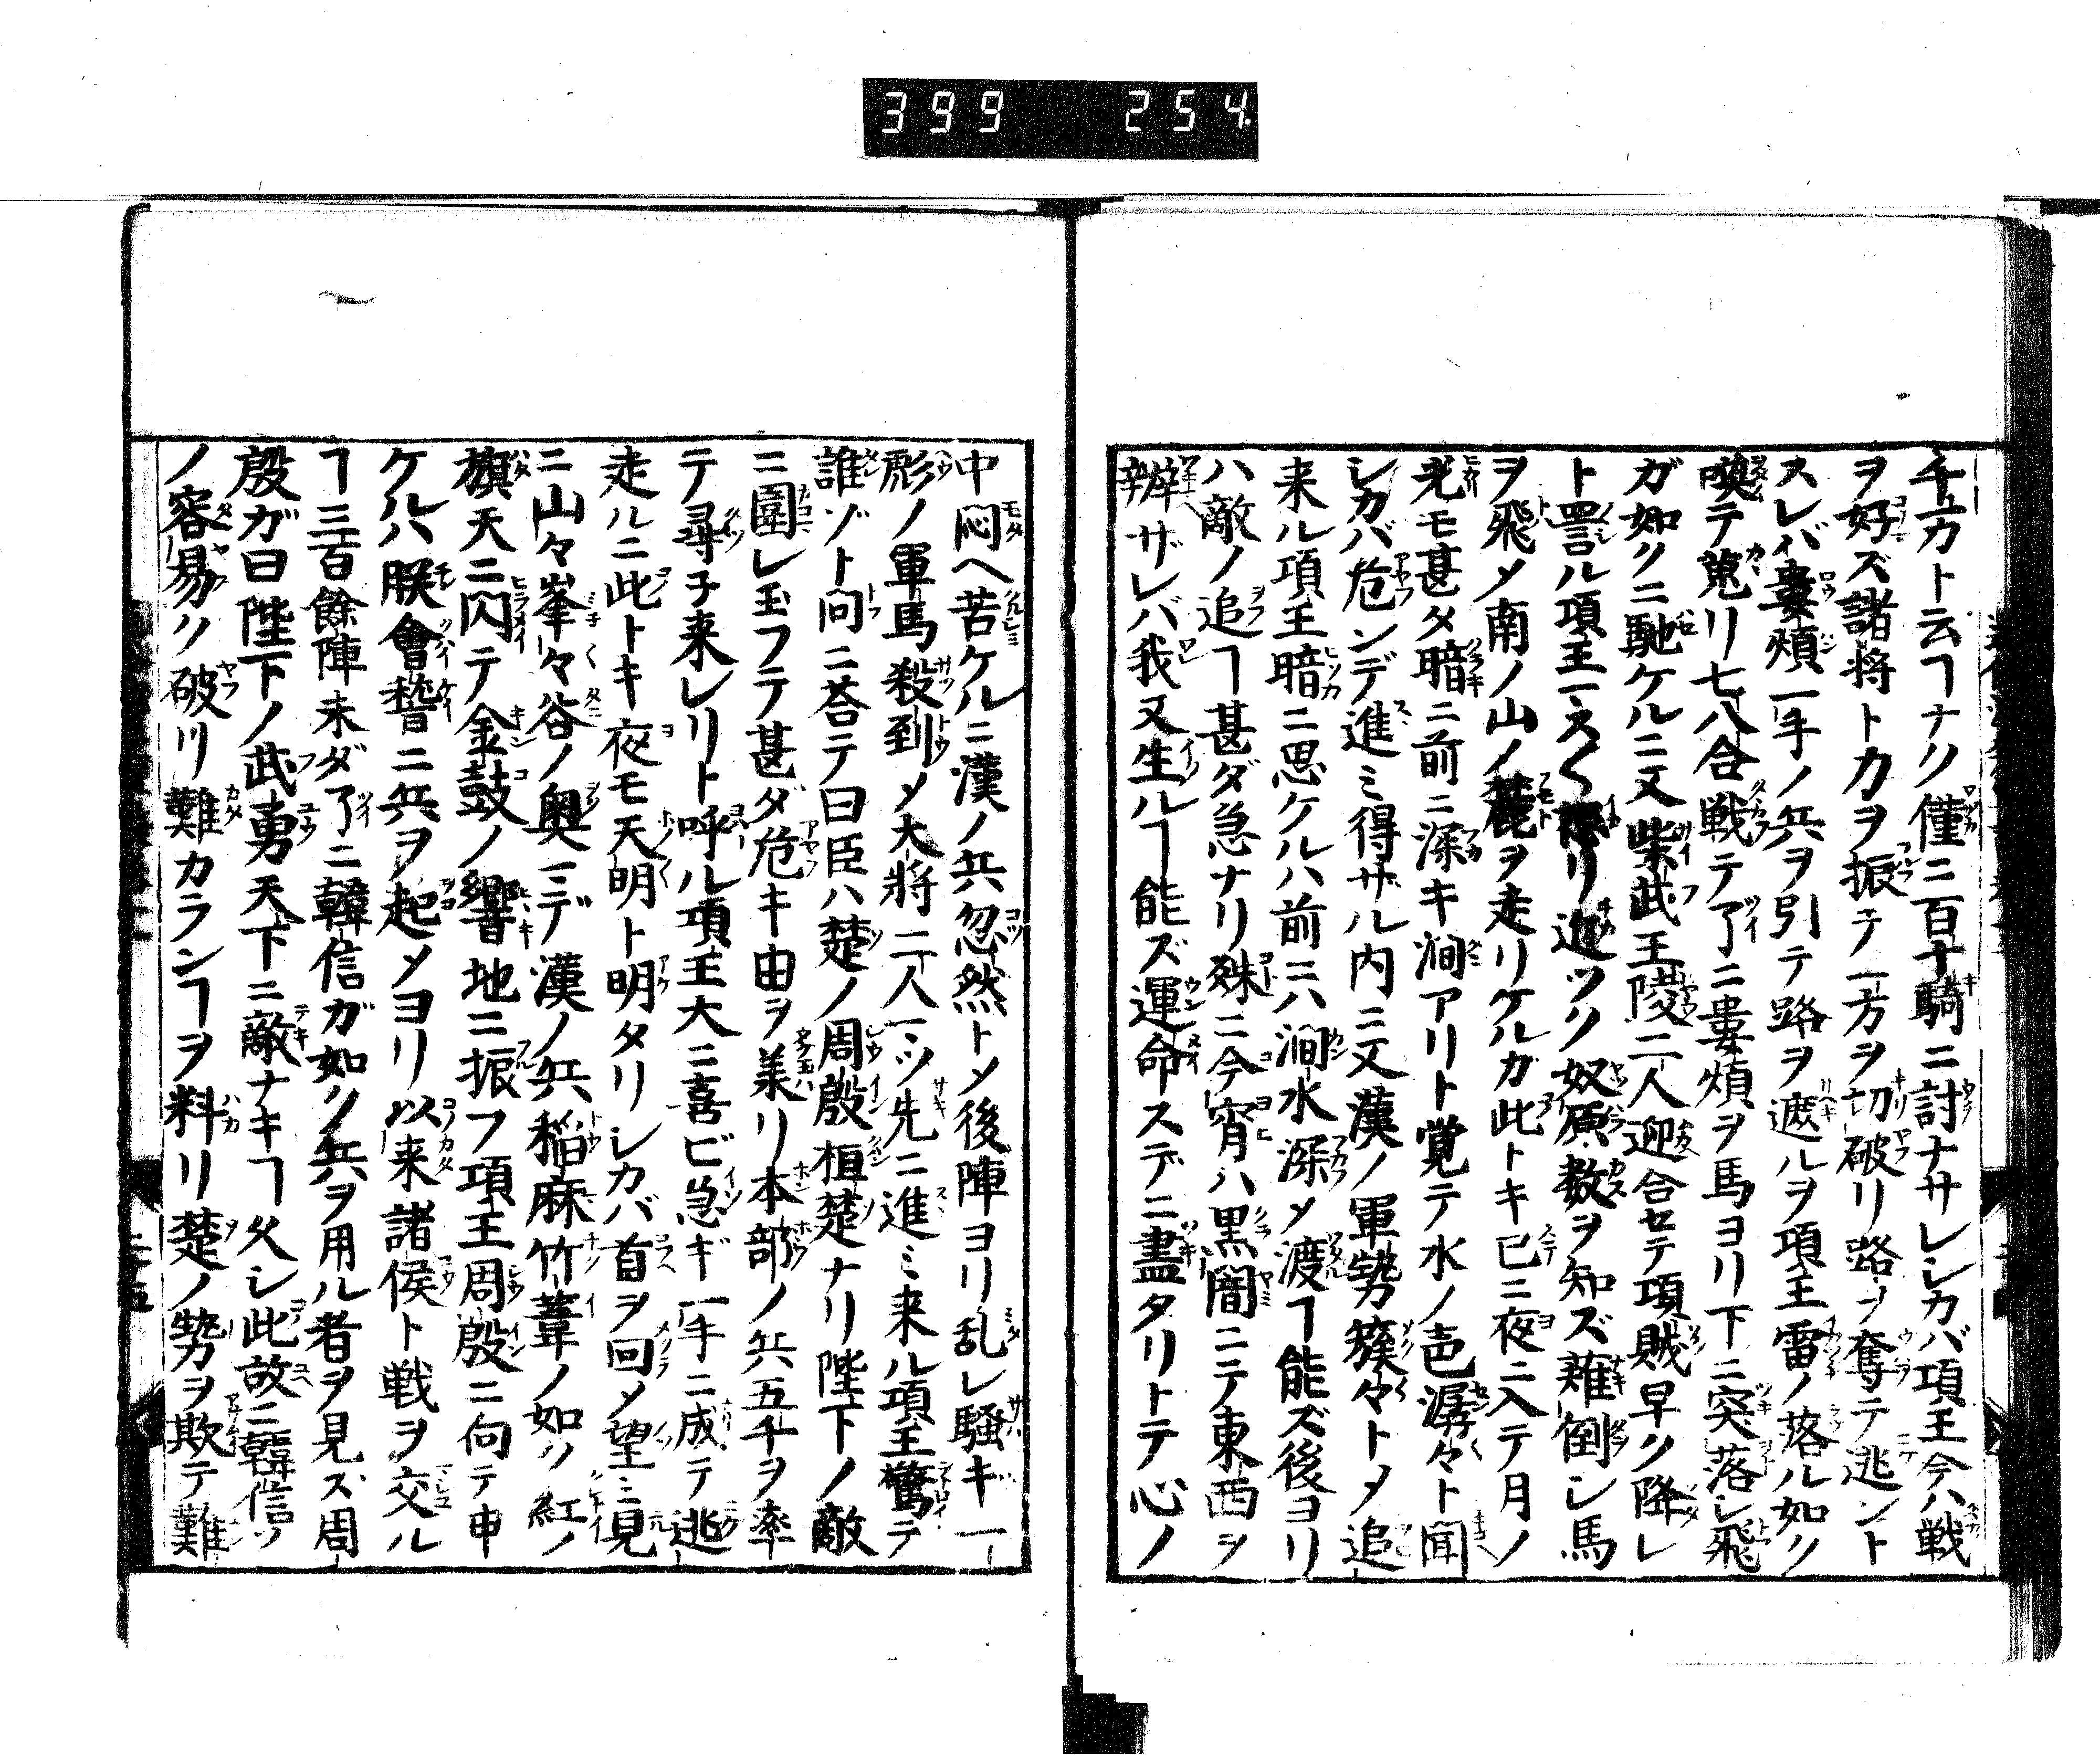 399 254
千正カト云ヿナク僅ニ百十騎ニ討ナサレシカバ項王今ハ戦
ヲ好ズ諸将ト力ヲ振テ一方ヲ切破リ路ヲ奪テ逃ント
スレバ婁煩一手ノ兵ヲ引テ路ヲ遮ルヲ項王雷ノ落ル如ク
喚テ蒐リ七八合戦テ了ニ婁煩ヲ馬ヨリ下ニ突落シ飛
ガ如クニ馳ケルニ又柴武王陵二人迎合セテ項賊早ク降レ
ト詈ル項王マスく怒リ近ツク奴原数ヲ知ズ薙倒シ馬
ヲ飛メ南ノ山ノ麓ヲ走リケルガ此トキ已ニ夜ニ入テ月ノ
光モ甚タ暗ニ前ニ深キ澗アリト覚テ水ノ色潺々ト聞
シカバ危ンデ進ミ得ザル内ニ又漢ノ軍勢簇々トメ追
来ル項王暗ニ思ケルハ前ニハ澗水深メ渡ヿ能ズ後ヨリ
ハ敵ノ追ヿ甚ダ急ナリ殊ニ今宵ハ黒闇ニテ東西ヲ
辨ザレバ我又生ルヿ能ズ運命スデニ盡タリトテ心ノ
中悶ヘ苦ケルニ漢ノ兵忽然トメ後陣ヨリ乱レ騒ギ一
彪ノ軍馬殺到メ大將二人一ツ先ニ進ミ来ル項王驚テ
誰ゾト問ニ荅テ曰臣ハ楚ノ周殷桓楚ナリ陛下ノ敵
ニ圍レ玉フテ甚ダ危キ由ヲ羕リ本部ノ兵五千ヲ率
テ尋子来レリト呼ル項王大ニ喜ビ急ギ一手ニ成テ逃
走ルニ此トキ夜モ天明ト明タリシカバ首ヲ回メ望ミ見
ニ山々峯々谷ノ奥マデ漢ノ兵稲麻竹葦ノ如ク紅ノ
旗天ニ閃テ金鼓ノ響地ニ振フ項王周殷ニ向テ申
ケルハ朕會稽ニ兵ヲ起メヨリ以来諸侯ト戦ヲ交ル
ヿ三百餘陣未ダ了ニ韓信ガ如ク兵ヲ用ル者ヲ見ズ周
殷ガ曰陛下ノ武勇天下ニ敵ナキヿ久シ此故ニ韓信ソ
ノ容易ク破リ難カランヿヲ料リ楚ノ勢ヲ欺テ難